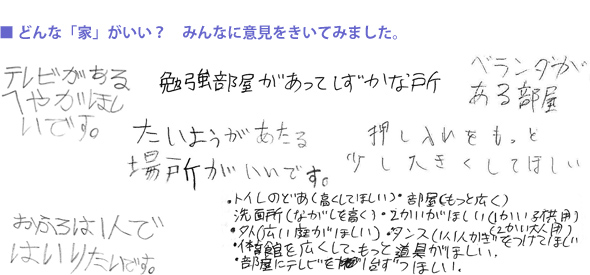 ■ どんな「家」がいい？　みんなに意見をきいてみました。
テレビがある
へやがほし
いです。
勉強部屋があってしずかな所
ベランダが
ある部屋
たいようがあたる
場所がいいです。
押し入れをもっと
少し大きくしてほしい
おふろは1人で
はいりたいです。
・トイレのどあ(高くしてほしい)・部屋(もっと広く)
洗面所(ながしを高く)・2かいがほしい(1かい子供用)
(2かい大人用)
・外(広い庭がほしい)・タンス(1人1人かぎをつけてほしい
・体育館を広くして、もっと道具がほしい。
・部屋にテレビを1台ずつほしい。